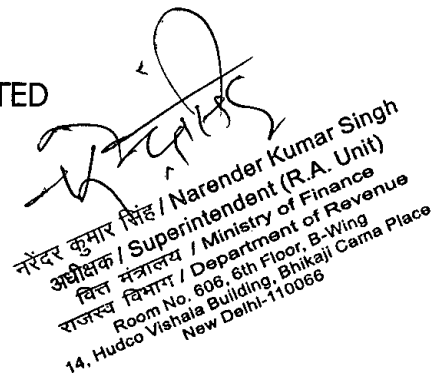 TED
नरेंदर कुमार सिंह / Narender Kumar Singh
अधीक्षक / Superintendent (R.A. Unit)
वित्त मंत्रालय / Ministry of Finance
राजस्व विभाग / Department of Revenue
Room No. 606, 6th Floor, B-Wing
14, Hudco Vishala Building, Bhikaji Cama Place
New Delhi-110066